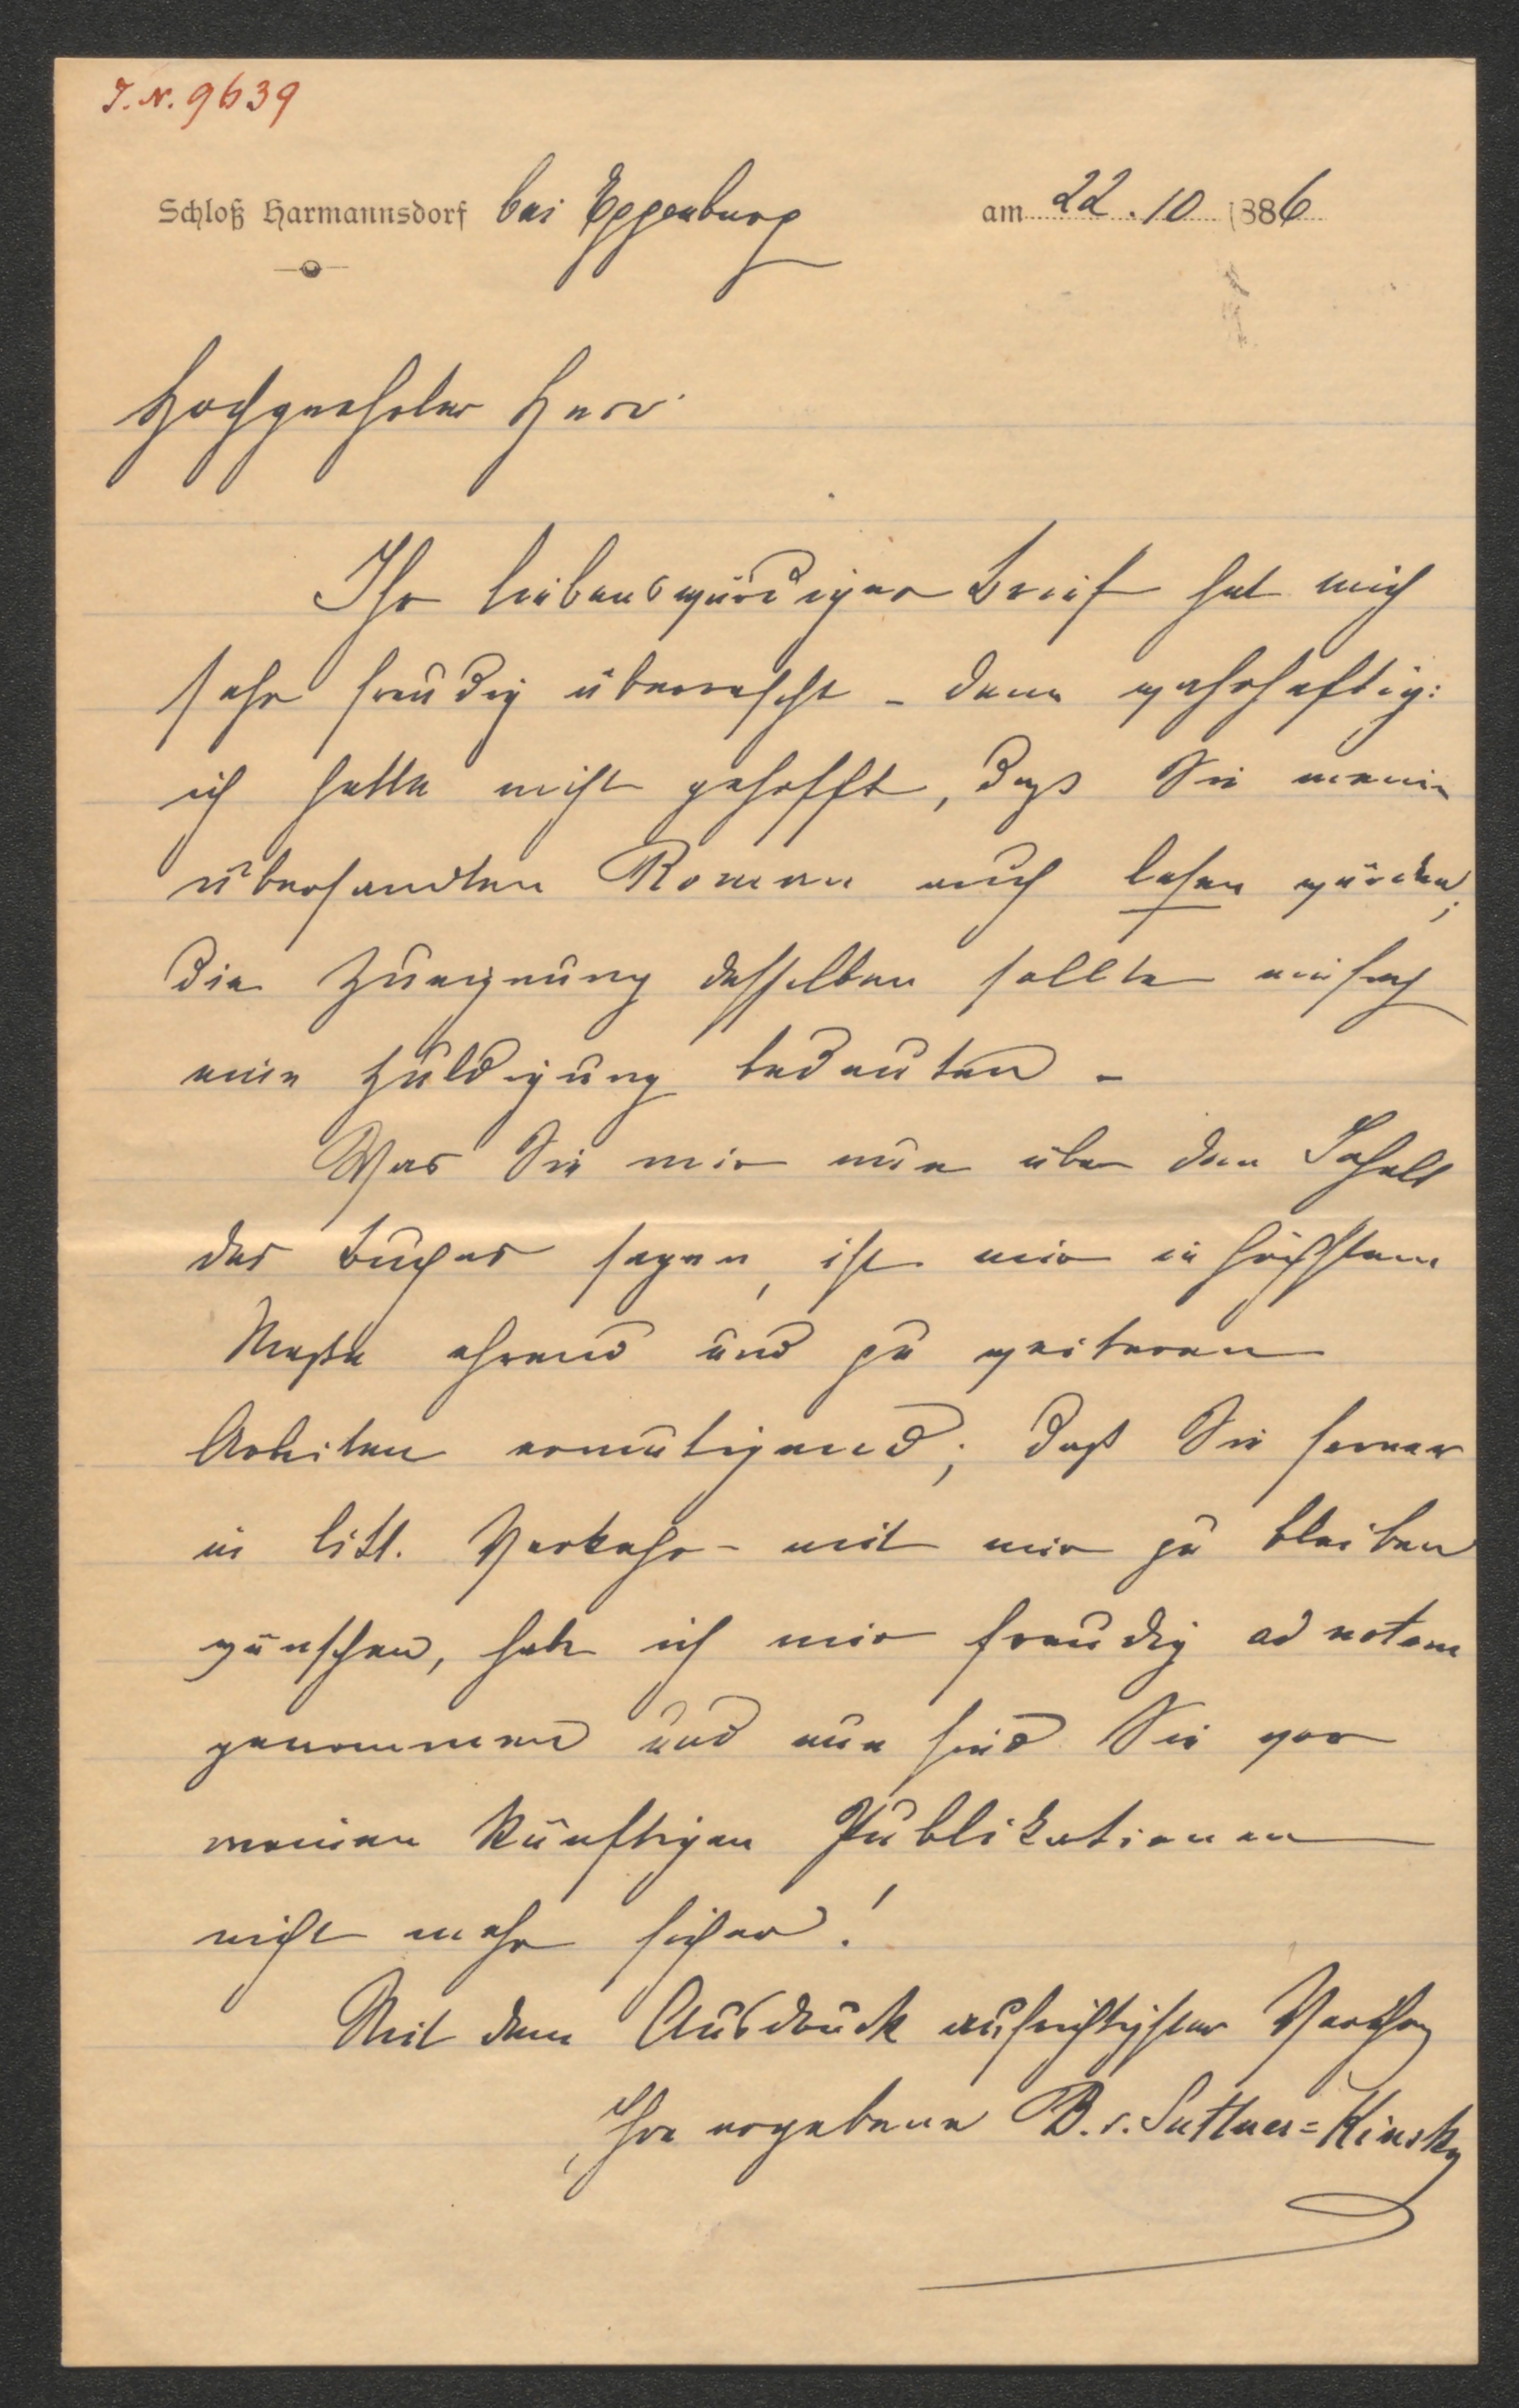 J. N. 9639
Schloß Harmannsdorf bei Eggenburg am 22. 10 1886
Hochgeehrter Herr
Ihr liebenswürdiger Brief hat mich
sehr freudig überrascht – denn wahrhaftig:
ich hatte nicht gehofft, daß Sie meinen
übersandten Roman auch lesen würden;
die Zueignung desselben sollte einfach
eine Huldigung bedeuten –
Was Sie mir nun über den Inhalt
des Buches sagen, ist mir in höchstem
Maße ehrend und zu weiteren
Arbeiten ermutigend; daß Sie ferner
in litt. Verkehr mit mir zu bleiben
wünschen, habe ich mir freudig ad notam
genommen und nun sind Sie vor
meinen künftigen Publikationen
nicht mehr sicher!
Mit dem Ausdruck aufrichtigster Verehrg
Ihre ergebene B. v. Suttner=Kinsky